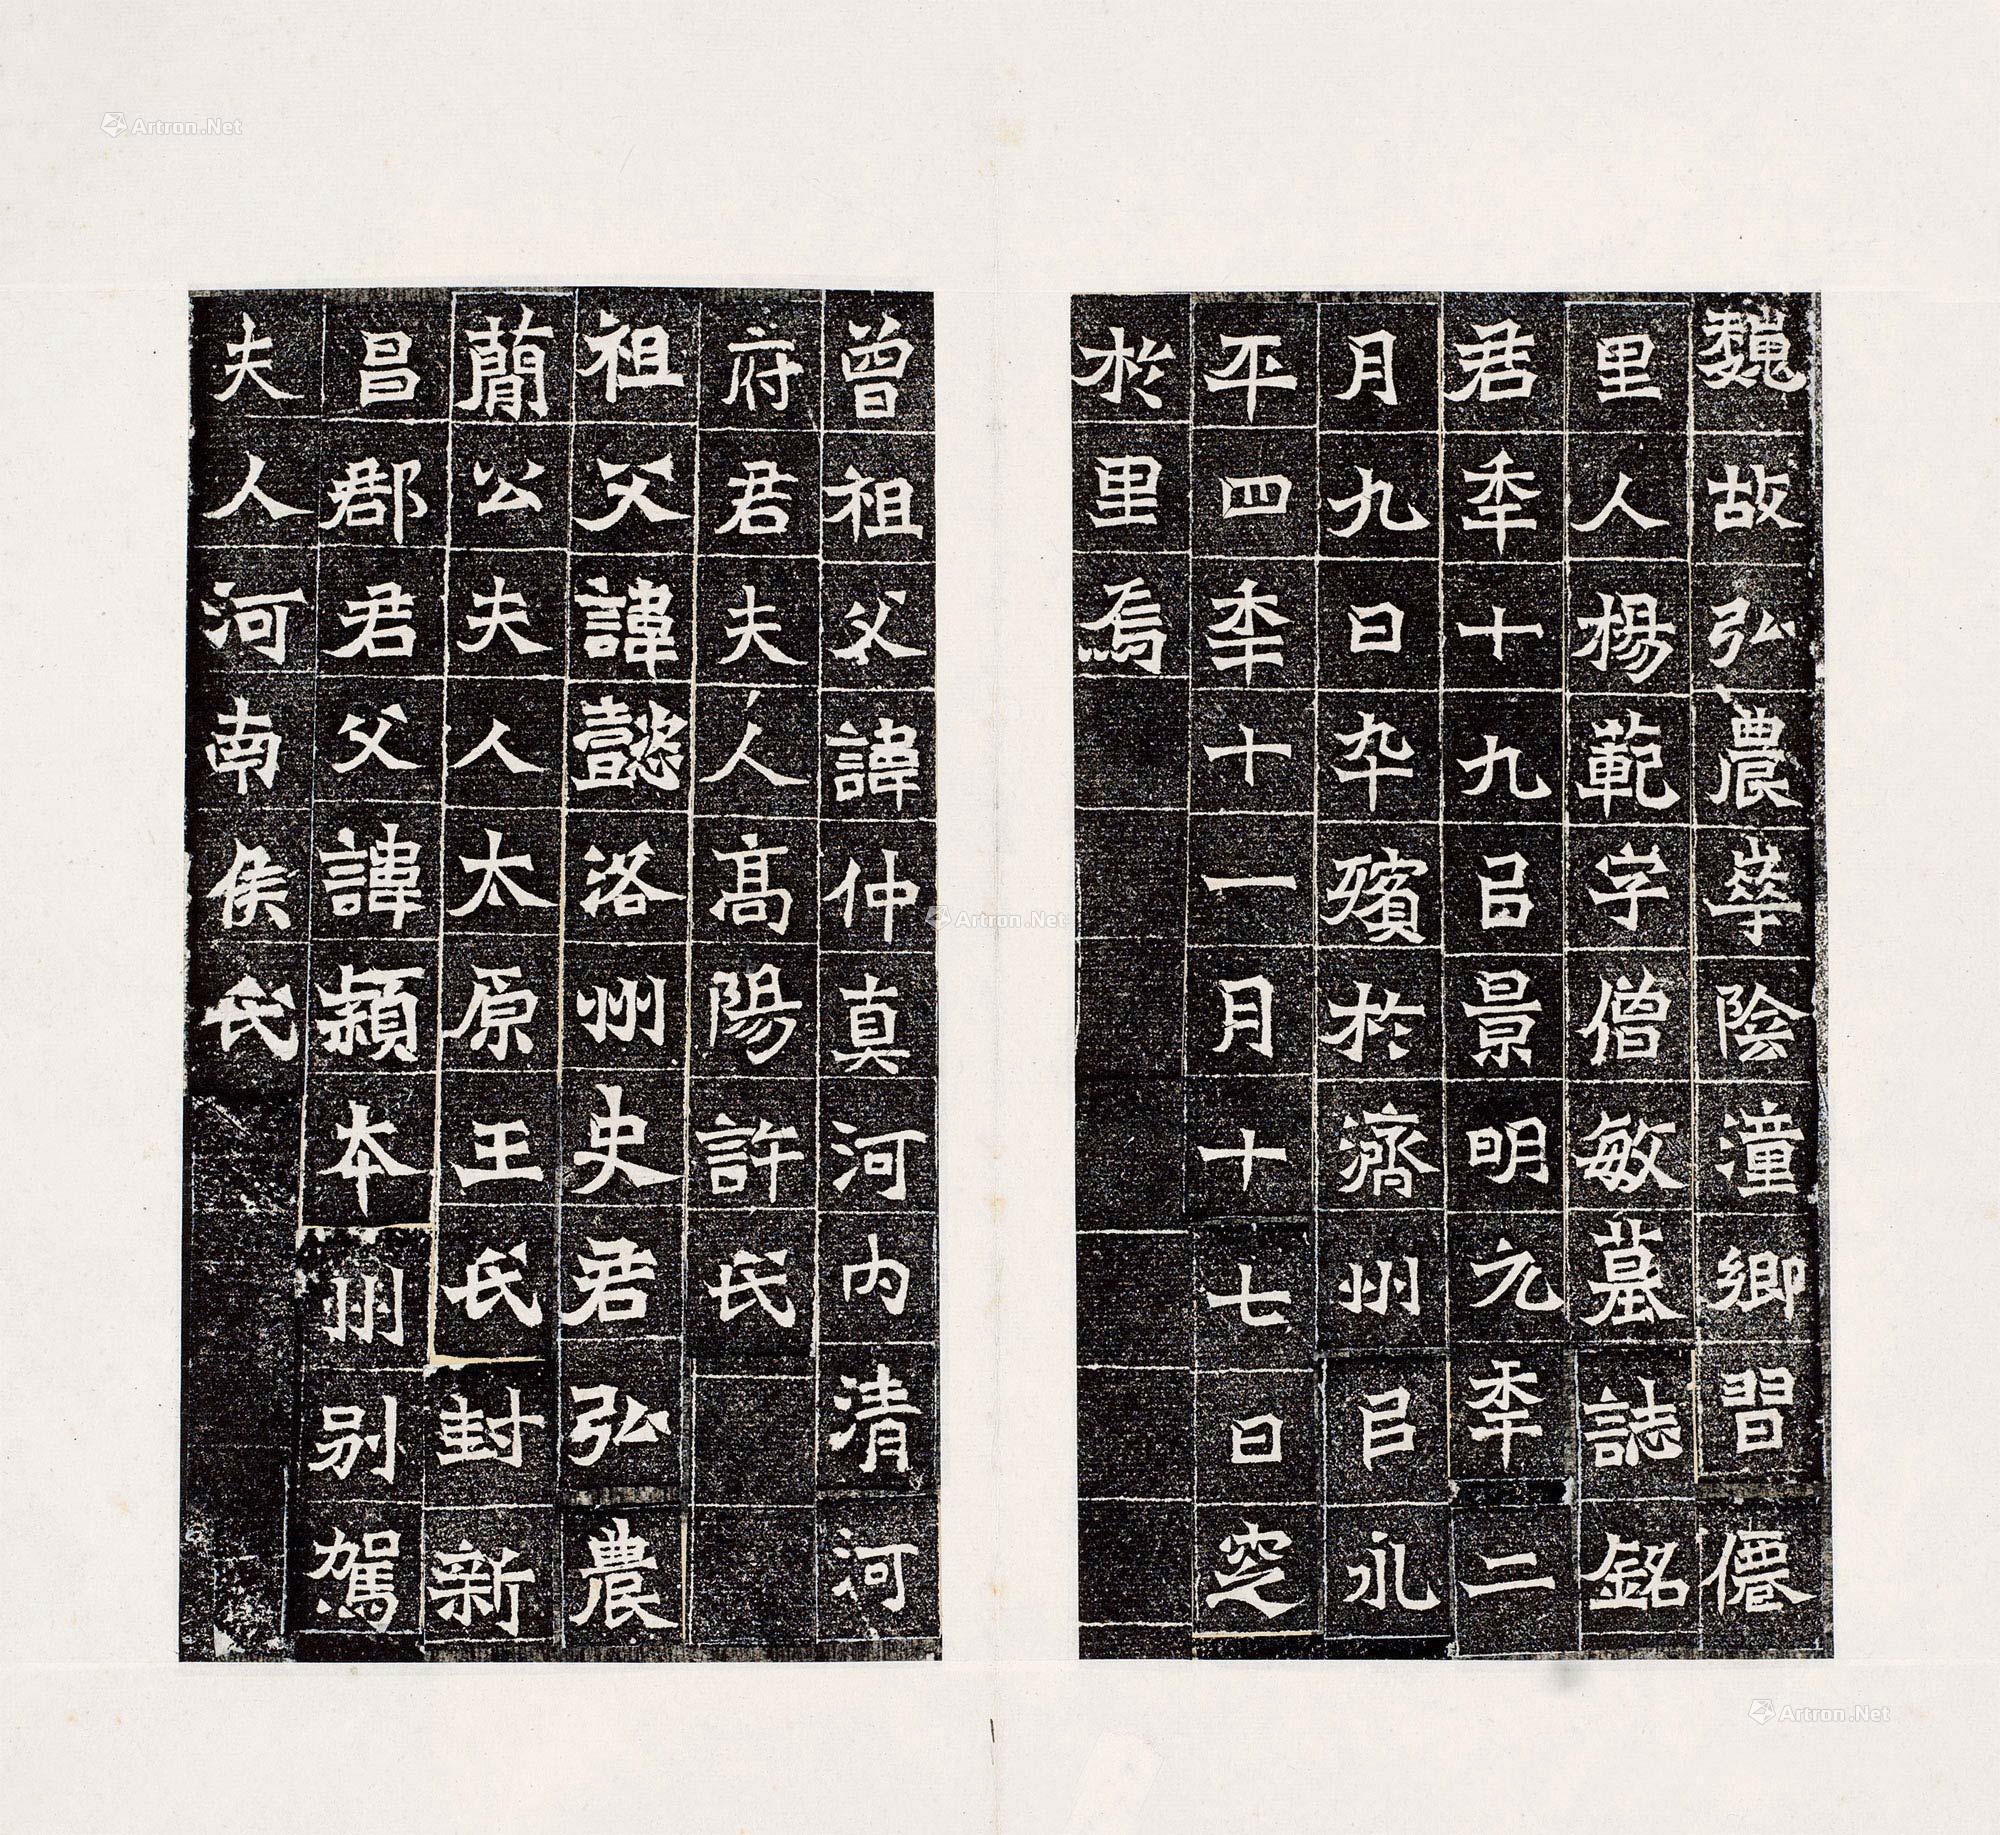 魏故弘農華陰潼鄉習僊
里人楊範字僧敏墓誌銘
君年十九以景明元年二
月九日卒殯於濟州以永
平四年十一月十七日窆
於里焉
曾祖父諱仲真河內清河
府君夫人高陽許氏
祖父諱懿洛州史君弘農
蕳公夫人太原王氏封新
昌郡君父諱穎本州別駕
夫人河南侯氏
Artron.Net
Artron.Net
Artron.Net